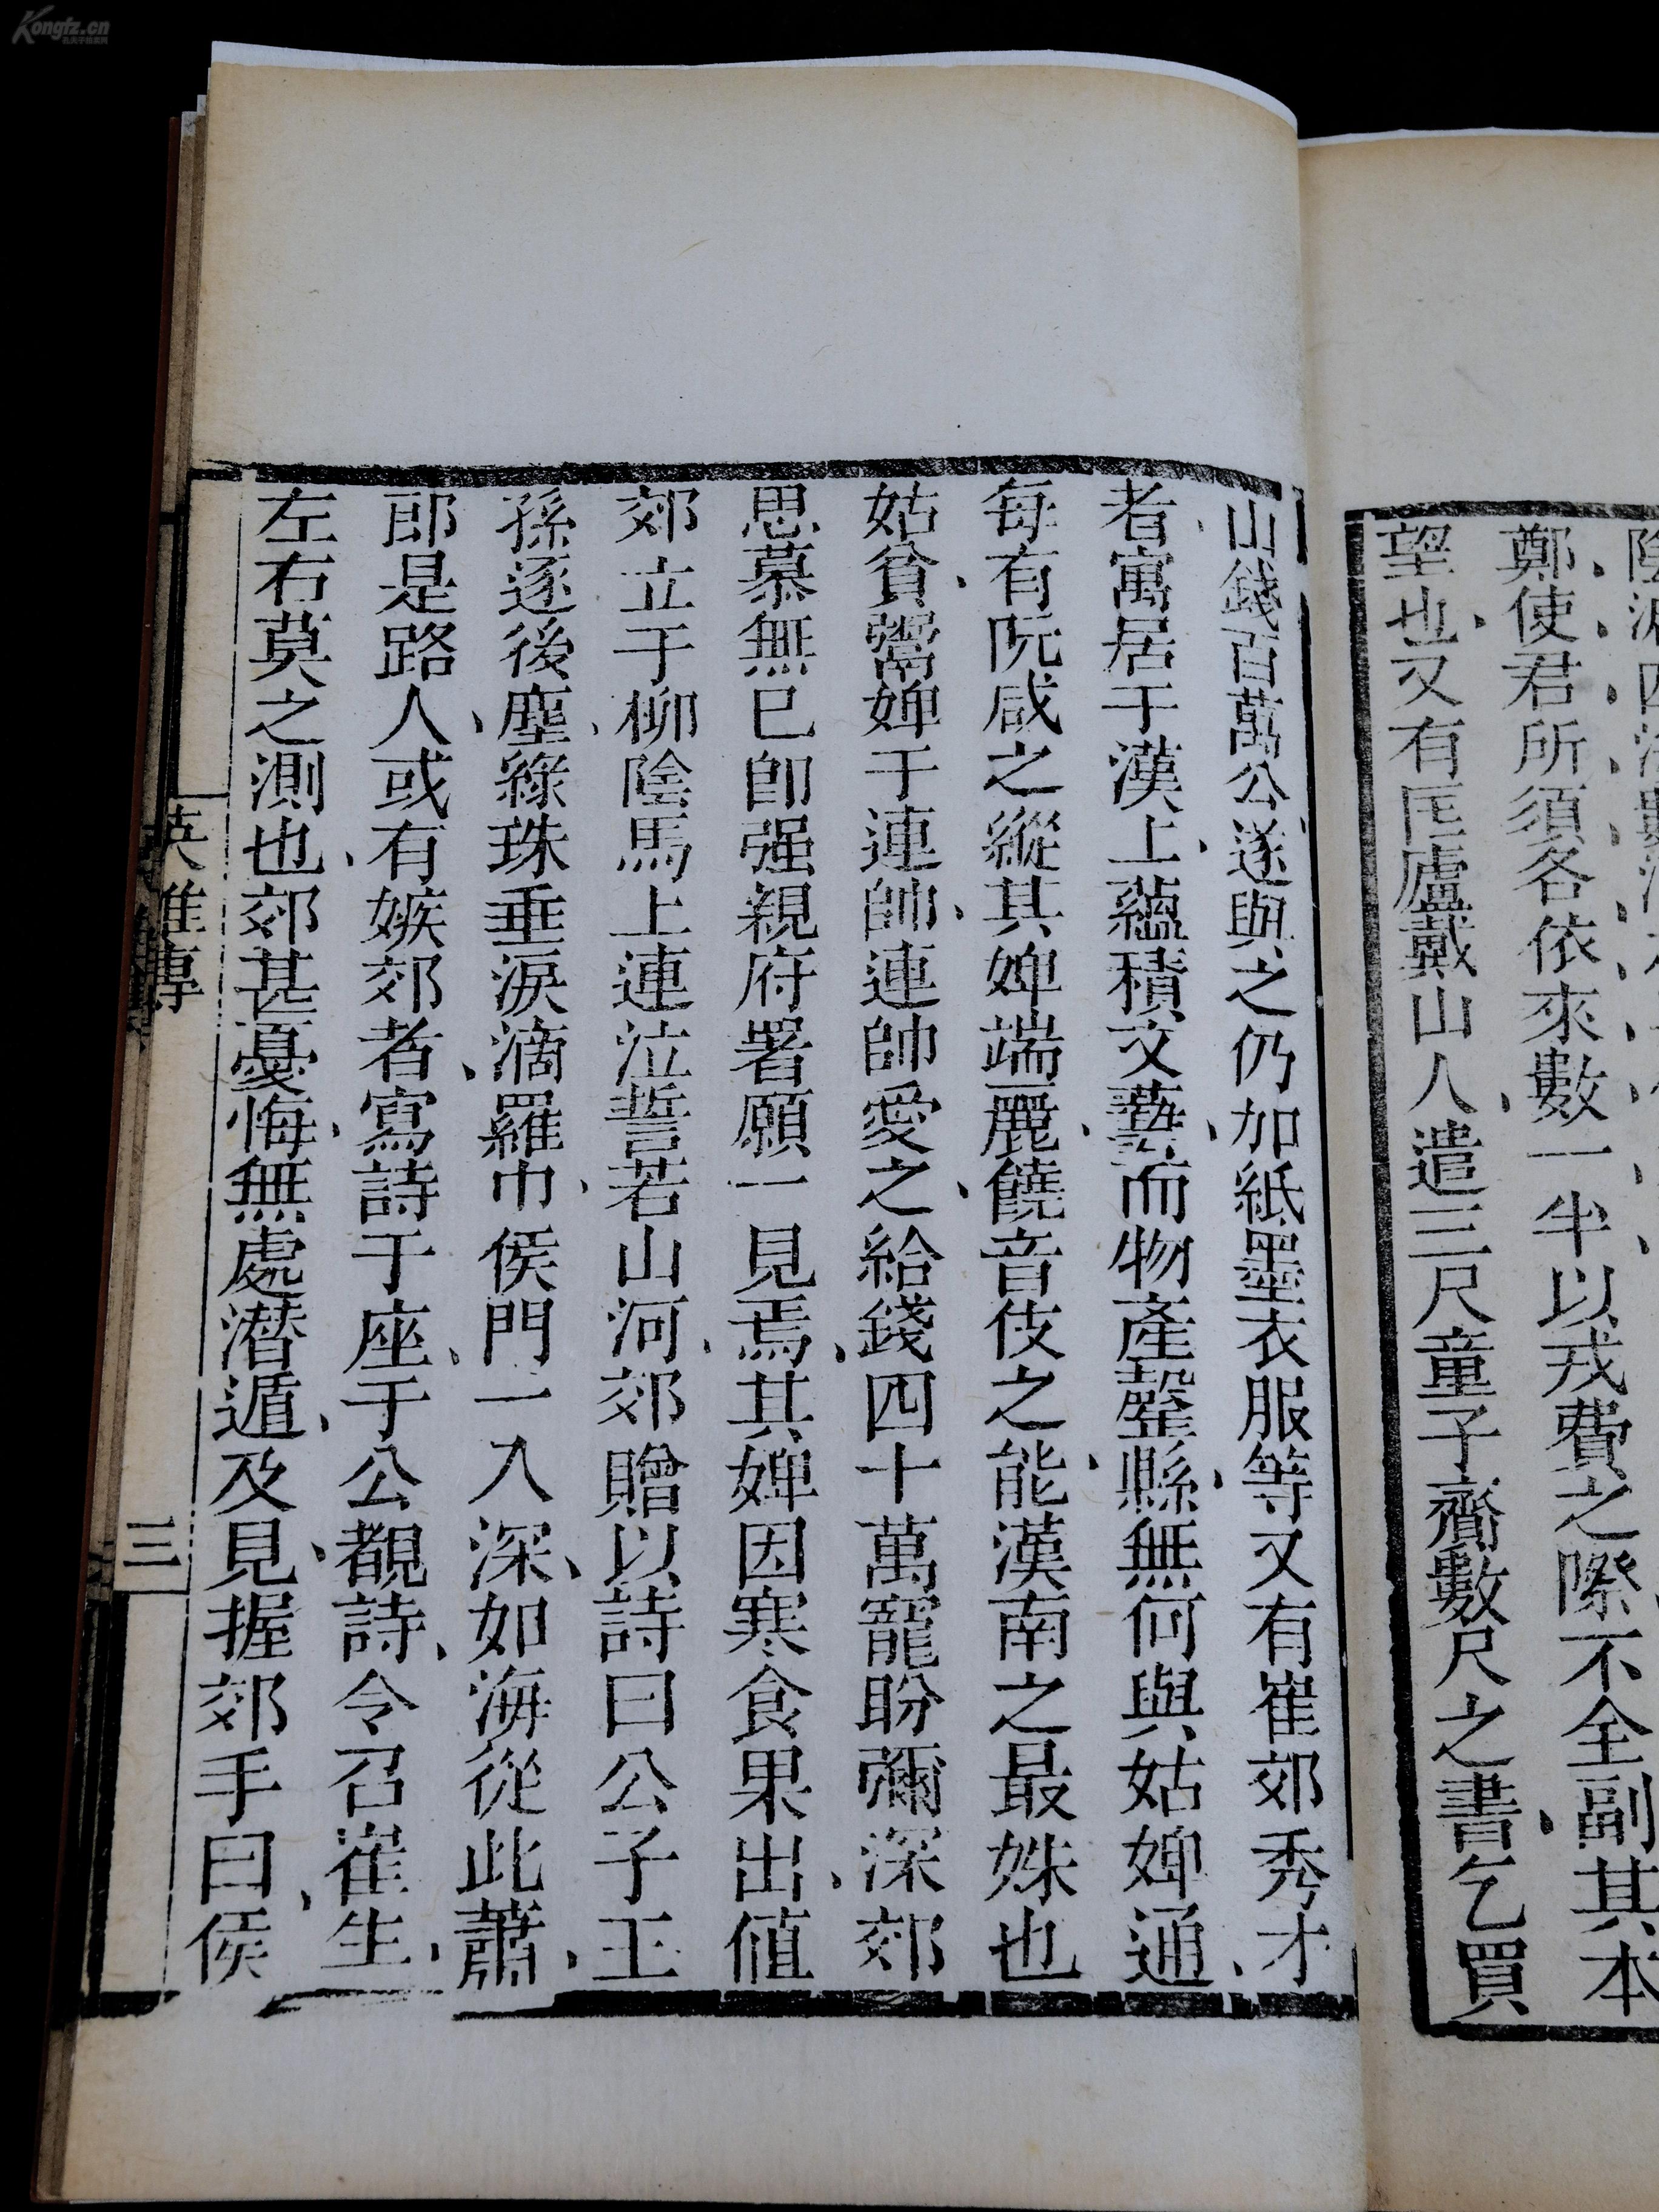 陰
鄭使君所須各依來數一半以戎費之際不全副其本
望也又有匡廬戴山人遣三尺童子齎數尺之書乞買
山錢百萬公遂與之仍加紙墨衣服等又有崔郊秀才
者寓居于漢上蘊積文藝而物產罄縣無何與姑婢通
每有阮咸之縱其婢端麗饒音伎之能漢南之最姝也
姑貧鬻婢于連帥連帥愛之給錢四十萬寵盼彌深郊
思慕無已卽强親府署願一見焉其婢因寒食果出値
郊立于柳陰馬上連泣誓若山河郊贈以詩曰公子王
孫逐後塵綠珠垂淚滴羅巾侯門一入深如海從此蕭
郎是路人或有嫉郊者寫詩于座于公覩詩令召崔生
左右莫之測也郊甚憂悔無處潜遁及見握郊手曰侯
英雄傳
三
Kongfz.cn
孔夫子舊書网